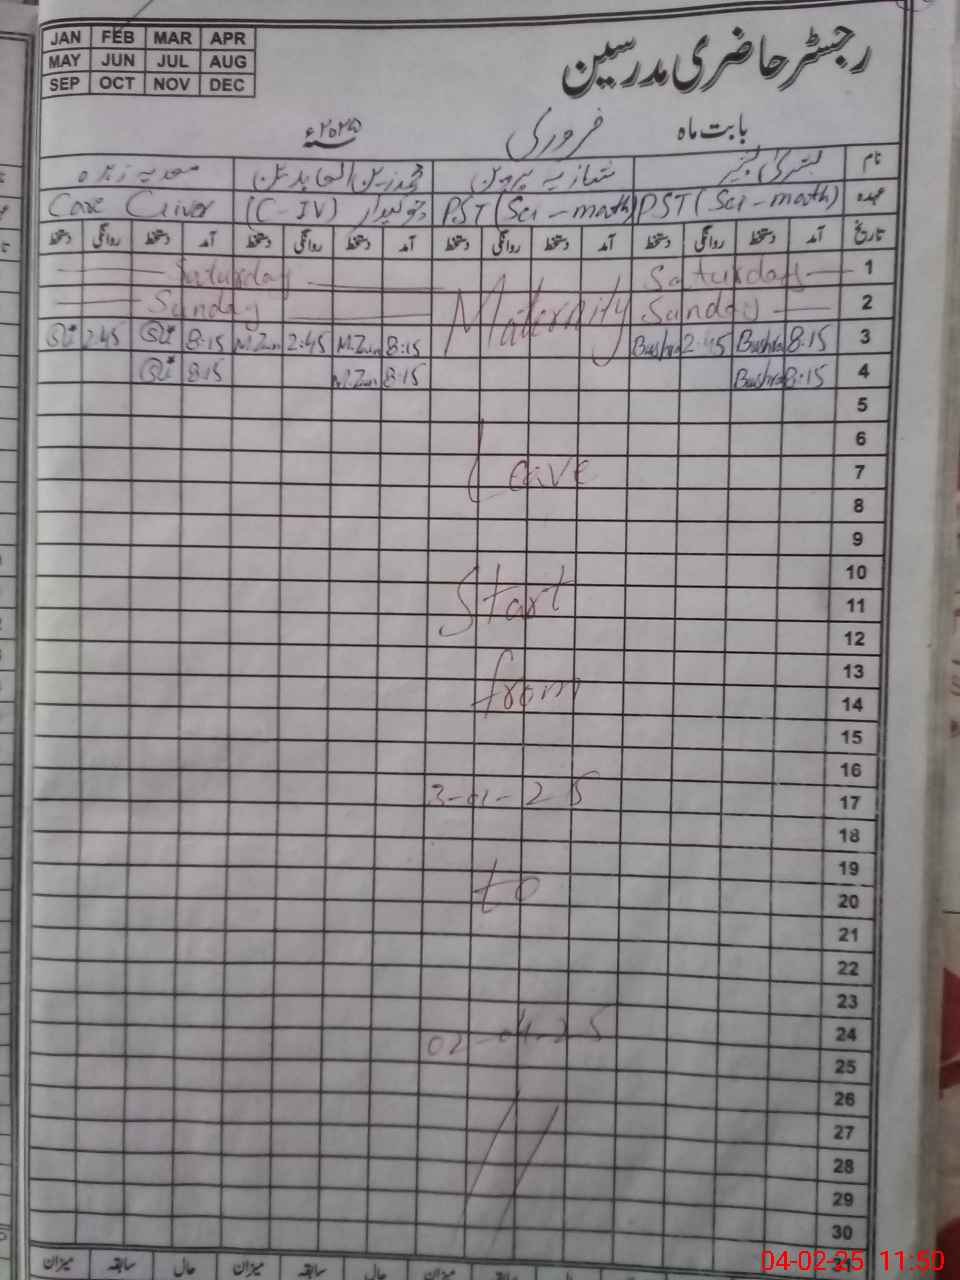 JAN FEB MAR APR
MAY JUN JUL AUG
SEP OCT NOV DEC
رجسٹر حاضری مدرسین
بابت ماہ فروری ۲۰۲۵ء
نام بشریٰ شازیہ پروین محمد زین العابدین سعدیہ زہرہ
عہدہ PST (Sci-math) PST (Sci-math) چوکیدار (C-IV) Care Giver
تاریخ آمد دستخط روانگی دستخط آمد دستخط روانگی دستخط آمد دستخط روانگی دستخط آمد دستخط روانگی دستخط
Saturday Saturday 1
Sunday Maternity Sunday 2
2:45 8:15 M.Zain 2:45 M.Zain 8:15 Bushra 2:45 Bushra 8:15 3
8:15 M.Zain 8:15 Bushra 8:15 4
5
6
Leave 7
8
9
10
Start 11
12
13
from 14
15
16
3-01-25 17
18
19
to 20
21
22
23
02-04-25 24
25
26
27
28
29
30
31
میزان سابقہ حال میزان سابقہ حال میزان سابقہ
04-02-25 11:50